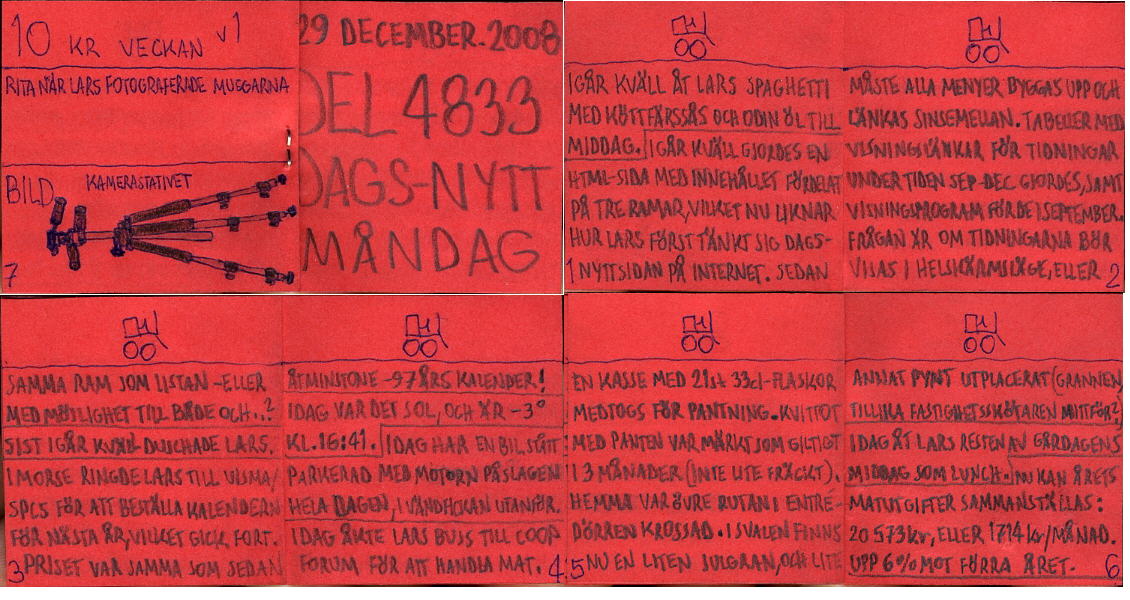 10 KR VECKAN v1
RITA NÄR LARS FOTOGRAFERADE MUGGARNA
BILD KAMERASTATIVET
7
29 DECEMBER. 2008
DEL 4833
DAGS-NYTT
MÅNDAG
IGÅR KVÄLL ÅT LARS SPAGHETTI
MED KÖTTFÄRSSÅS OCH ODIN ÖL TILL
MIDDAG. IGÅR KVÄLL GJORDES EN
HTML-SIDA MED INNEHÅLLET FÖRDELAT
PÅ TRE RAMAR, VILKET NU LIKNAR
HUR LARS FÖRST TÄNKT SIG DAGS-
1 NYTTSIDAN PÅ INTERNET. SEDAN
MÅSTE ALLA MENYER BYGGAS UPP OCH
LÄNKAS SINSEMELLAN. TABELLER MED
VISNINGSLÄNKAR FÖR TIDNINGAR
UNDER TIDEN SEP-DEC GJORDES, SAMT
VISNINGSPROGRAM FÖR DE I SEPTEMBER.
FRÅGAN ÄR OM TIDNINGARNA BÖR
VISAS I HELSKÄRMSLÄGE, ELLER 2
SAMMA RAM SOM LISTAN - ELLER
MED MÖJLIGHET TILL BÅDE OCH..?
SIST IGÅR KVÄLL DUSCHADE LARS.
I MORSE RINGDE LARS TILL VISMA/
SPCS FÖR ATT BESTÄLLA KALENDERN
FÖR NÄSTA ÅR, VILKET GICK FORT.
3 PRISET VAR SAMMA SOM SEDAN
ÅTMINSTONE -97 ÅRS KALENDER!
IDAG VAR DET SOL, OCH ÄR -3°
KL. 16:41. IDAG HAR EN BIL STÅTT
PARKERAD MED MOTORN PÅSLAGEN
HELA DAGEN, I VÄNDHOKAN UTANFÖR.
IDAG ÅKTE LARS BUSS TILL COOP
FORUM FÖR ATT HANDLA MAT. 4
EN KASSE MED 21st 33cl-FLASKOR
MEDTOGS FÖR PANTNING. KVITTOT
MED PANTEN VAR MÄRKT SOM GILTIGT
I 3 MÅNADER (INTE UTE FRÄCKT).
HEMMA VAR ÖVRE RUTAN I ENTRE-
DÖRREN KROSSAD. I SVALEN FINNS
5 NU EN LITEN JULGRAN, OCH LITE
ANNAT PYNT UTPLACERAT (GRANNEN,
TILLIKA FASTIGHETSSKÖTAREN MITTFÖR?)
IDAG ÅT LARS RESTEN AV GÅRDAGENS
MIDDAG SOM LUNCH. NU KAN ÅRETS
MATUTGIFTER SAMMANSTÄLLAS:
20 573 kr, ELLER 1714 kr/MÅNAD.
UPP 6% MOT FÖRRA ÅRET. 6